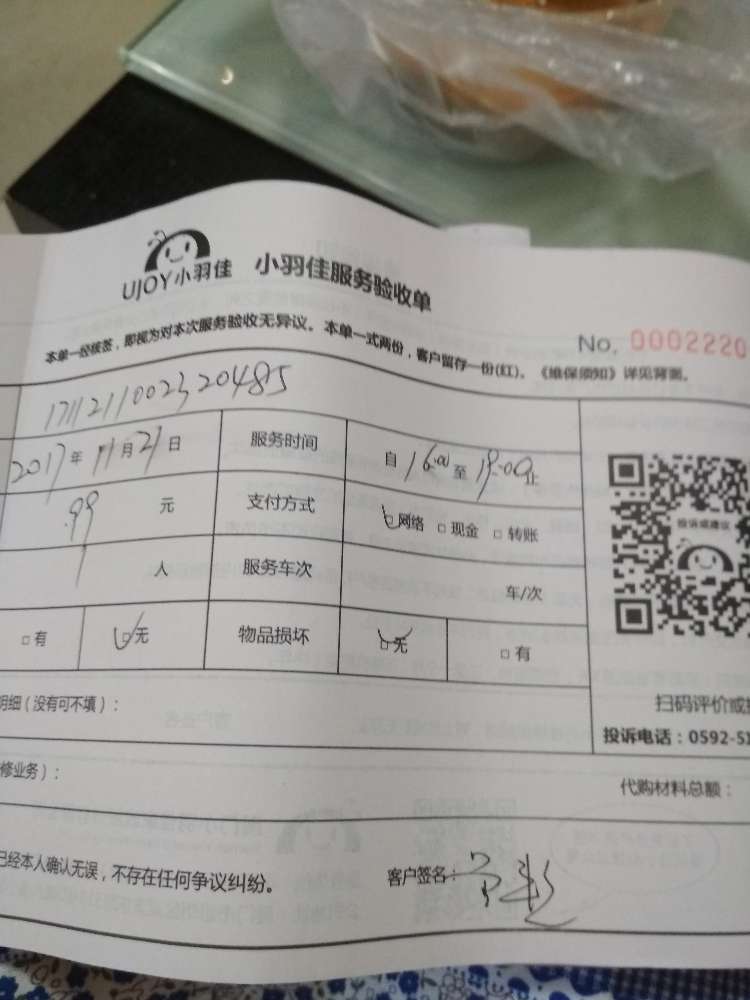 UJOY小羽佳 小羽佳服务验收单
No. 0002220
本单一经核签，即视为对本次服务验收无异议。本单一式两份，客户留存一份(红)。《维保须知》详见背面。
1711211002320485
2017年11月21日 服务时间 自16:00至19:00止
99 元 支付方式 网络 现金 转账
1 人 服务车次 车/次
有 无 物品损坏 无 有
投诉或建议
扫码评价或
明细（没有可不填）：
投诉电话：0592-51
修业务）：
代购材料总额：
已经本人确认无误，不存在任何争议纠纷。 客户签名：